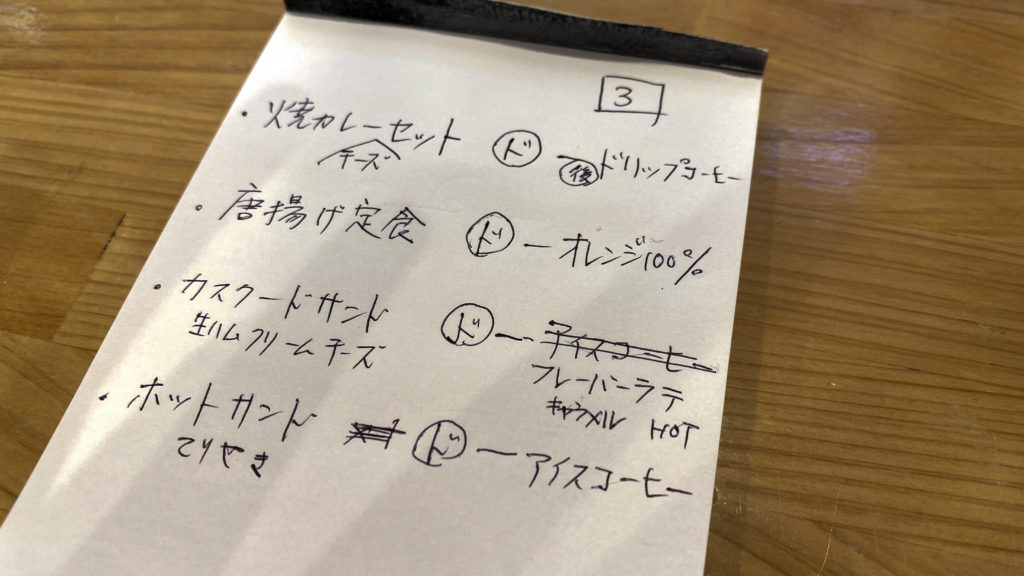 3
・焼カレーセット ド ー 後 ドリップコーヒー
チーズ
・唐揚げ定食 ド ー オレンジ100%
・カスクードサンド ド ー アイスコーヒー
生ハムクリームチーズ フレーバーラテ
キャラメル HOT
・ホットサンド ド ー アイスコーヒー
てりやき